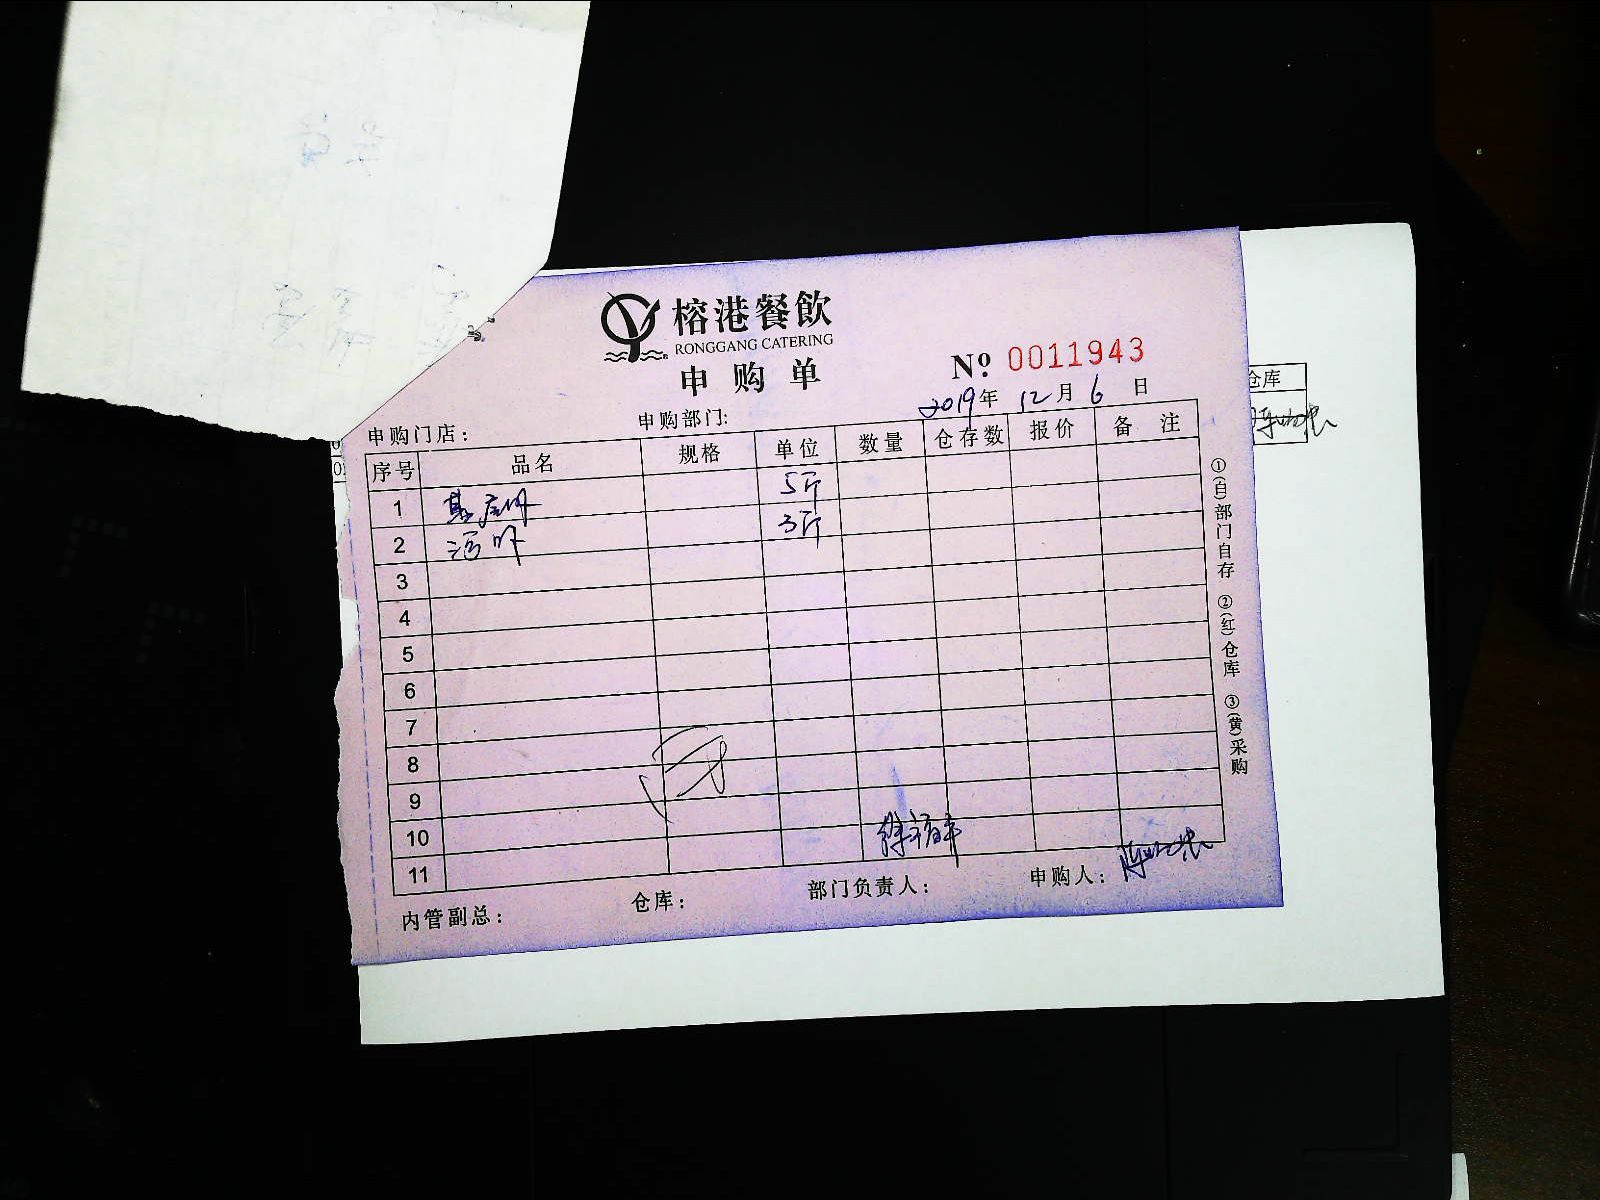 榕港餐飲
RONGGANG CATERING
申购单
Nº 0011943
2019年 12月 6日
申购门店： 申购部门:
序号 品名 规格 单位 数量 仓存数 报价 备 注
1 基尾虾 5斤
2 河虾 3斤
3
4
5
6
7
8
9
10
11
内管副总： 仓库： 部门负责人： 申购人：
①(自)部门自存 ②(红)仓库 ③(黄)采购
仓库